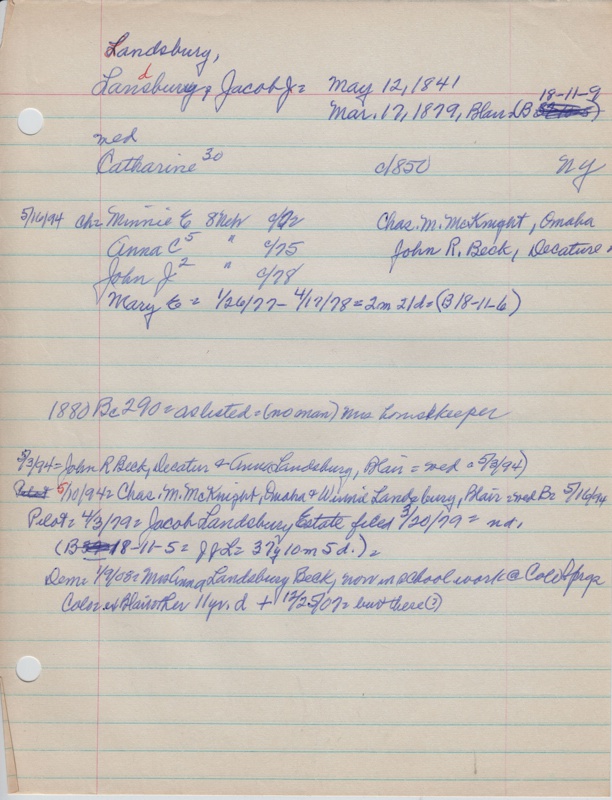 Landsbury,
Landsbury, Jacob J = May 12, 1841
18-11-9
Mar. 17, 1879, Blair (B
med
Catharine 30 c1850 NY
5/16/94 ch = Minnie E 8 Neb c/72 Chas. M. McKnight, Omaha
Anna C 5 " c/75 John R. Beck, Decature
John J 2 " c/78
Mary E = 1/26/77 - 4/17/78 = 2m 21d = (B 18-11-6)
1880 Bc 290 = as listed = (no man) Mrs housekeeper
5/3/94 = John R Beck, Decatur & Anna Landsburg, Blair = wed = 5/3/94)
Pilot 5/10/94 = Chas. M. McKnight, Omaha & Landsbury, Blair = wed B = 5/16/94
Pilot = 4/3/79 = Jacob Landsbury Estate filed 3/20/79 = nd.
(B 18-11-5 = J J L = 37y 10m 5d.) =
Dem = 1/9/08 = Mrs Anna Landsbury Beck, now in school work @ Cold
Color = Blair other 11 yr. d + 12/25/07 = but these (?)